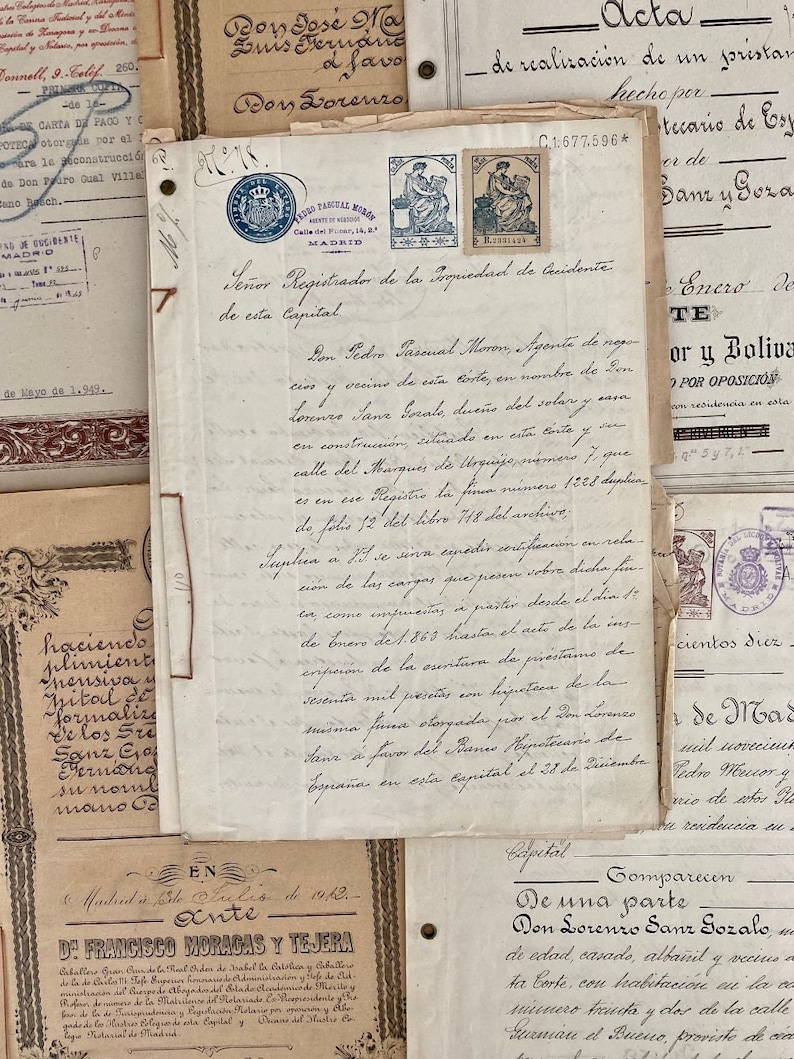 Donnell, 9.-Teléf. 260.
PRIMERA COPIA
-de la-
DE CARTA DE PAGO Y
otorgada por el
para la Reconstrucción
de Don Pedro Gual Villa
ano Rosch.
DE OCCIDENTE
MADRID
de Mayo de 1.949.
Don José Ma
Luis Fernánd
a favo
Don Lorenzo
Acta
de realización de un préstam
hecho por
otecario de Esp
or de
Sanz y Goza
Enero de
TE
or y Boliva
O POR OPOSICIÓN
con residencia en esta
nº 5 y 7, 1.º
C.1.677.596*
Nº 18.
TIMBRE DEL ESTADO
PEDRO PASCUAL MORÓN
AGENTE DE NEGOCIOS
Calle del Fúcar, 14, 2.º
MADRID
B.2331424
Señor Registrador de la Propiedad de Occidente
de esta Capital
Don Pedro Pascual Moron, Agente de nego-
cios y vecino de esta Córte, en nombre de Don
Lorenzo Sanz Gozalo, dueño del solar y casa
en construccion, situado en esta Corte y su
calle del Marqués de Urquijo, número 7, que
es en ese Registro la finca número 1228 duplica-
do, folio 12 del libro 718 del archivo;
Suplica a V.S. se sirva expedir certificacion en rela-
ción de las cargas que pesen sobre dicha fin-
ca, como impuestas á partir desde el dia 1º
de Enero de 1.863 hasta el acto de la ins-
cripción de la escritura de préstamo de
sesenta mil pesetas con hipoteca de la
misma finca otorgada por el Don Lorenzo
Sanz á favor del Banco Hipotecario de
España en esta capital el 28 de Diciembre
haciendo
plimient
pensiva
pital de
formaliz
de los Sre
Sanz Goz
Fernánd
su nomb
mano D
EN
Madrid á 6 de Julio de 1912.
ante
Dn. FRANCISCO MORAGAS Y TEJERA
Caballero Gran Cruz de la Real Orden de Isabel la Católica y Caballero
de la de Carlos III. Jefe Superior honorario de Administracion y Jefe de Ad-
ministración del Cuerpo de Abogados del Estado Académico de Mérito y
Profesor de número de la Matritense del Notariado. Ex-Vicepresidente y Pro-
fesor de la de Jurisprudencia y Legislación Notario por oposición y Abo-
gado de los Ilustres Colegios de esta Capital y Decano del Ilustre Co-
legio Notarial de Madrid.
cientos diez
a de Mad
mil novecient
Pedro Menor y
ario de estos Ilu
residencia en
Capital
Comparecen
De una parte
Don Lorenzo Sanz Gozalo, m
de edad, casado, albañil y vecino d
ta Corte, con habitación en la ca
número treinta y dos de la calle
Guzmán el Bueno, provisto de ced